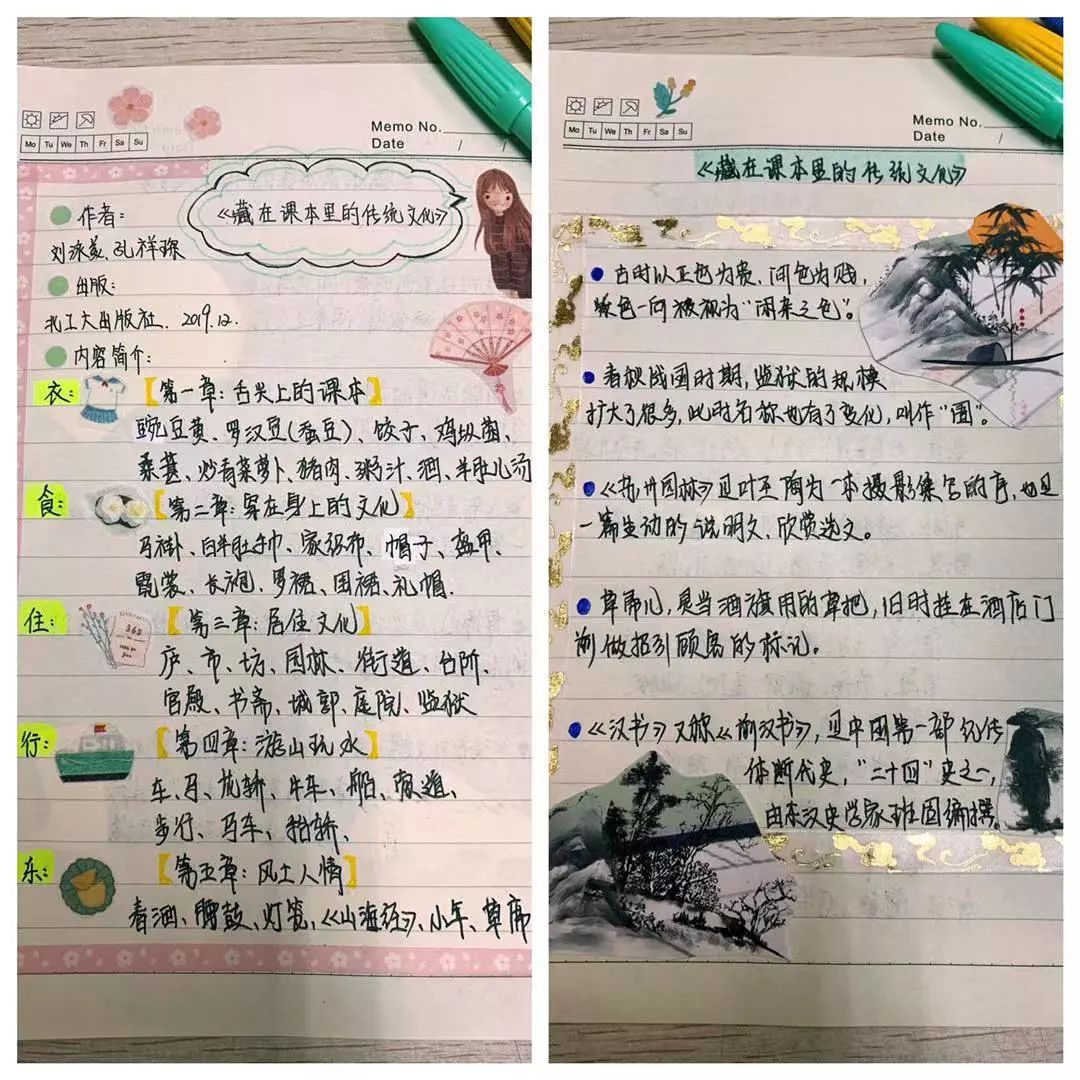 Memo No.
Date / /
Mo Tu We Th Fr Sa Su
《藏在课本里的传统文化》
作者:
刘泳羲、孔祥琛
出版:
北工大出版社. 2019.12.
内容简介:
衣:【第一章:舌尖上的课本】
豌豆黄、罗汉豆(蚕豆)、饺子、鸡纵菌、
桑葚、炒青菜萝卜、猪肉、粥汁、酒、羊肚儿汤
食:【第二章:穿在身上的文化】
马褂、白羊肚手巾、家织布、帽子、盔甲、
氅裳、长袍、罗裙、围裙、礼帽.
住:【第三章:居住文化】
庐、市、坊、园林、街道、台阶、
宫殿、书斋、城郭、庭院、监狱
行:【第四章:游山玩水】
车、马、龙轿、牛车、船、蔽道、
步行、马车、抬轿、
东:【第五章:风土人情】
春酒、腰鼓、灯笼、《山海经》、小年、草帘
Memo No.
Date / /
Mo Tu We Th Fr Sa Su
《藏在课本里的传统文化》
古时以正色为贵,间色为贱,
紫色一向被视为“闲来之色”。
春秋战国时期,监狱的规模
扩大了很多,此时名称也有了变化,叫作“圄”。
《苏州园林》是叶至陶为一本摄影集写的序,也是
一篇生动的说明文、欣赏选文。
草帘儿,是当酒旗用的草把,旧时挂在酒店门
前做招引顾客的标记。
《汉书》又称《前汉书》,是中国第一部纪传
体断代史,“二十四”史之一,
由东汉史学家班固编撰。